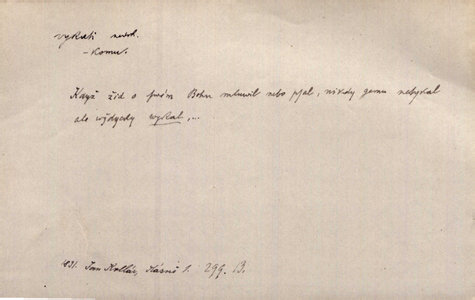 vykati nedok.
- komu.
Když žid o swém Bohu mluwil nebo psal, nikdy gemu netykal
ale wždycky wykal,...
1831. Jan Kollár, Kázně I. 299. B.